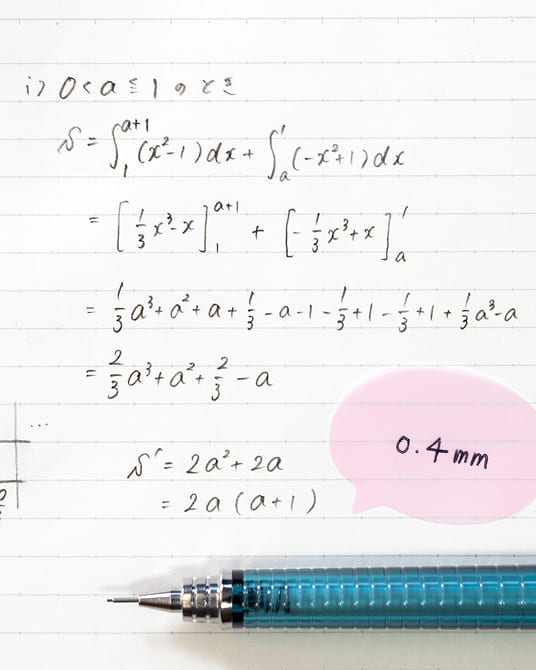 i) 0 < a ≦ 1 のとき
S = ∫₁^{a+1} (x²-1) dx + ∫ₐ^1 (-x²+1) dx
= [1/3 x³ - x]₁^{a+1} + [-1/3 x³ + x]ₐ^1
= 1/3 a³ + a² + a + 1/3 - a - 1 - 1/3 + 1 - 1/3 + 1 + 1/3 a³ - a
= 2/3 a³ + a² + 2/3 - a
...
S' = 2a² + 2a
= 2a (a+1)
0.4mm